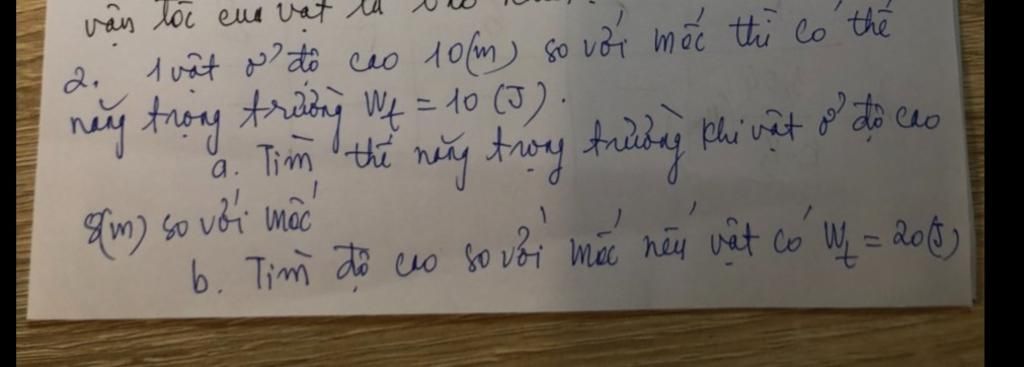 vận tốc của vật là
2. 1 vật ở độ cao 10(m) so với mốc thì có thế
năng trọng trường Wt = 10 (J).
a. Tìm thế năng trọng trường khi vật ở độ cao
8(m) so với mốc
b. Tìm độ cao so với mốc nếu vật có Wt = 20(J)